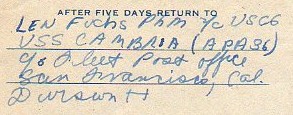 AFTER FIVE DAYS RETURN TO
LEN Fuchs PhM 3/c USCG
USS CAMBRIA (APA36)
c/o Fleet Post office
San Francisco, Cal.